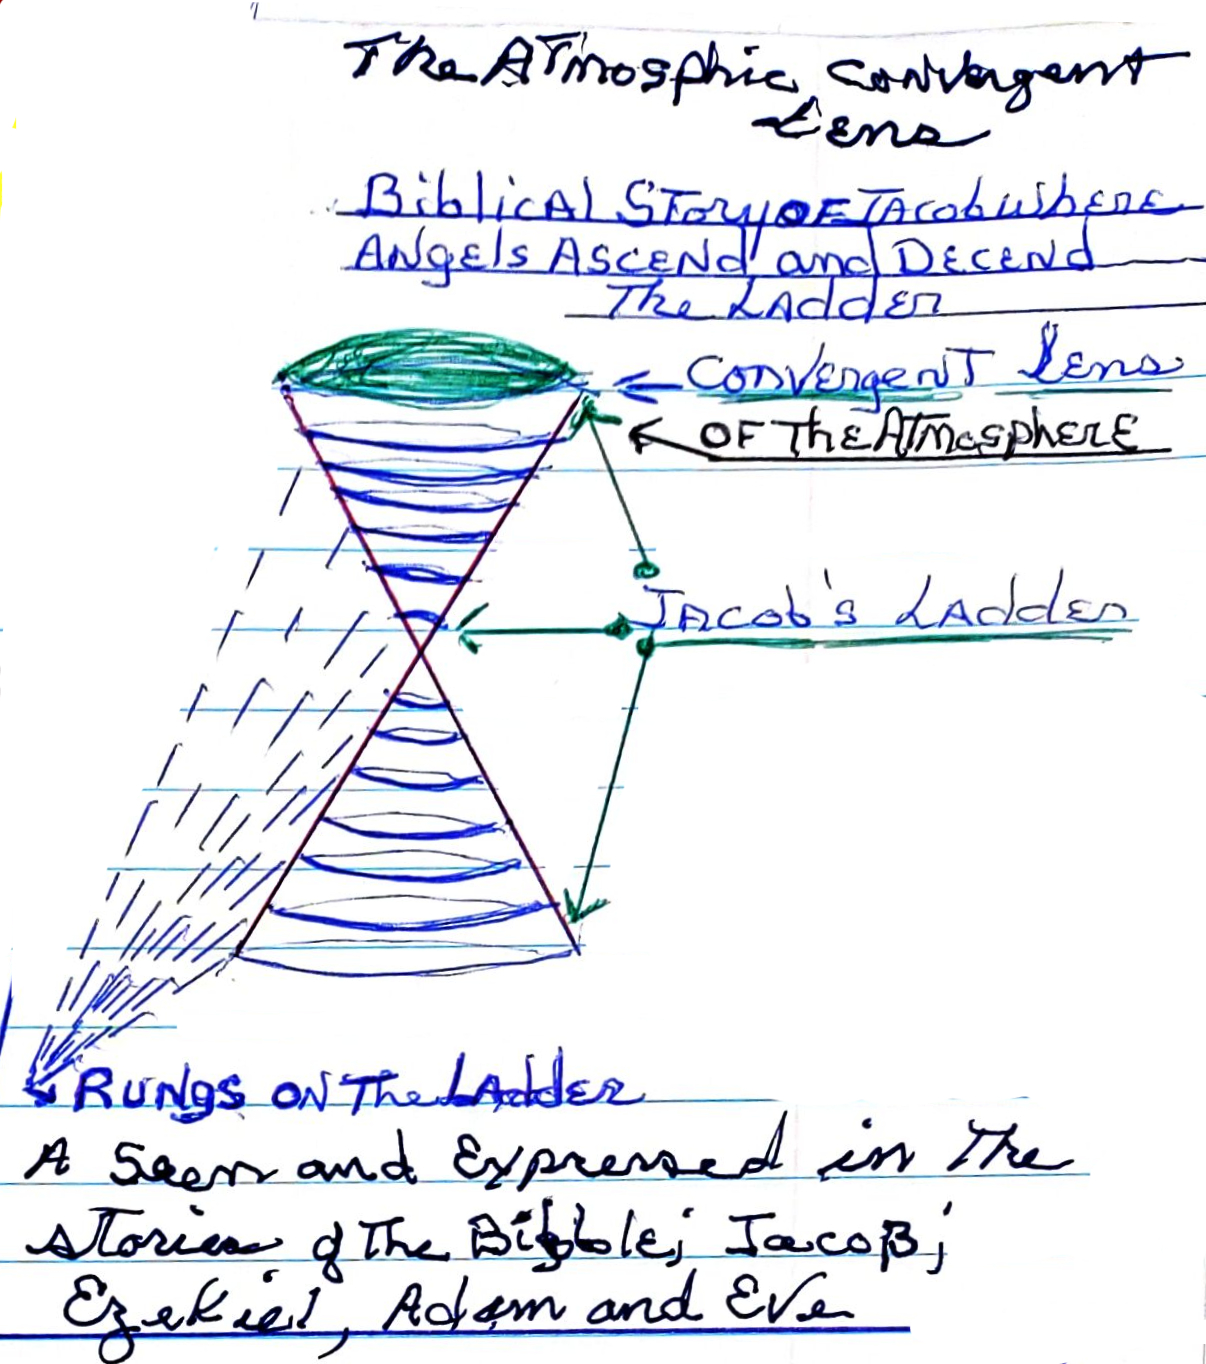 The ATmosphic Convergent
Lens
Biblical Story of Jacob Where
Angels Ascend and Decend
The Ladder
Convergent Lens
of the Atmosphere
Jacob's Ladder
Rungs on the Ladder
A Seen and Expressed in The
stories of The Bibble; Jacob;
Ezekiel, Adam and Eve